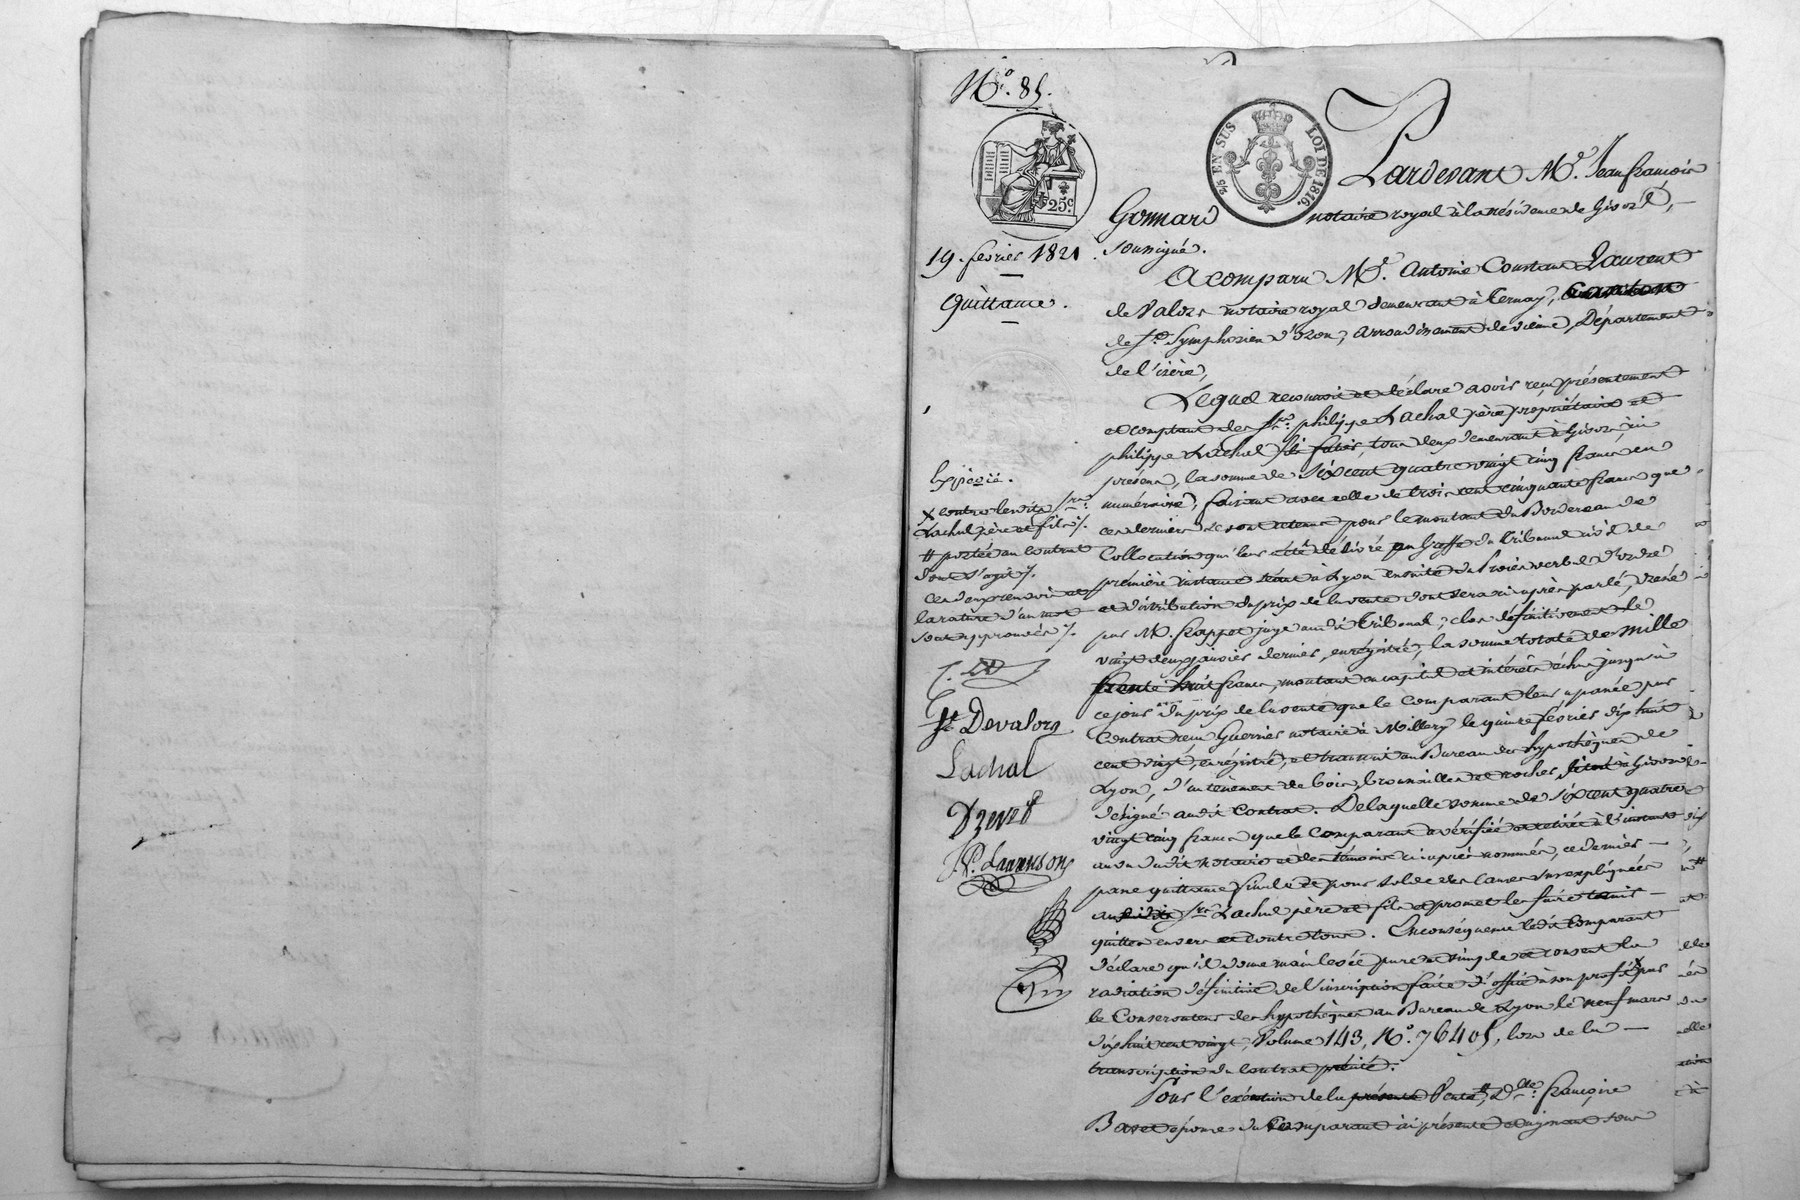 N.º 85.
25 c
2/5 EN SUS
LOI DE 1816.
Pardevant M.e Jean françois
Gonnard notaire royal à la résidence de Givors,
soussigné.
19 fevrier 1821.
Quittance.
A comparu M.e Antoine Constant Laurent
de Valors notaire royal demeurant à Ternay, canton
de St. Symphorien d'ozon, arrondissement de vienne, Département
de l'isère,
Lequel reconnoit et déclare avoir reçu présentement
et comptant des Srs. philippe Lachal père propriétaire et
philippe Lachal fils, tous deux demeurant à Givors, ici
présens, la somme de six cent quatre vingt cinq francs, en
numéraire, faisant avec celle de trois cent cinquante francs que
ces derniers se sont retenus pour le montant du Bordereau de
Collocation qui leur a été délivré au Greffe du tribunal civil de
première instance séant à Lyon ensuite du Procès verbal d'ordre
et distribution du prix de la vente dont sera ci après parlé, dressé
par M. frappet juge audit Tribunal, clos définitivement le
vingt deux janvier dernier, enrégistré, la somme totale de mille
trente huit francs, montant en capital et intérêts échus jusqu'à
ce jour du prix de la vente que le comparant leur a passée par
Contrat reçu Guerrier notaire à Millery le quinze février dix huit
cent vingt, enrégistré, et transcrit au Bureau des hypothèques de
Lyon, d'un ténement de bois, broussailles et rocher, situé à Givors
désigné audit contrat. De laquelle somme de six cent quatre
vingt cinq francs que le comparant a vérifiée et retirée à l'instant
au vu dudit notaire et des témoins ci après nommés, ce dernier
passe quittance finale et pour solde des causes sus expliquées
auxdits Srs Lachal père et fils et promet les faire tenir
quittes envers et contre tous. En conséquence ledit Comparant
déclare qu'il donne main levée pure et simple et consent la
radiation définitive de l'inscription faite d'office à son profit x par
le Conservateur des hypothèques au Bureau de Lyon le neuf mars
dix huit cent vingt, Volume 143, N.º 76405, lors de la
transcription du contrat précité.
Pour l'exécution de la présente Vente #, De. françoise
Basset épouse du Comparant ici présente et agissant sous
Expédié.
x contre lesdits Srs.
Lachal père et fils ./.
# portée au contrat
dont s'agit ./.
Ces deux renvois et
la rature d'un mot
sont approuvés ./.
Devalors
Lachal
Drevet
J. P. Laurenson